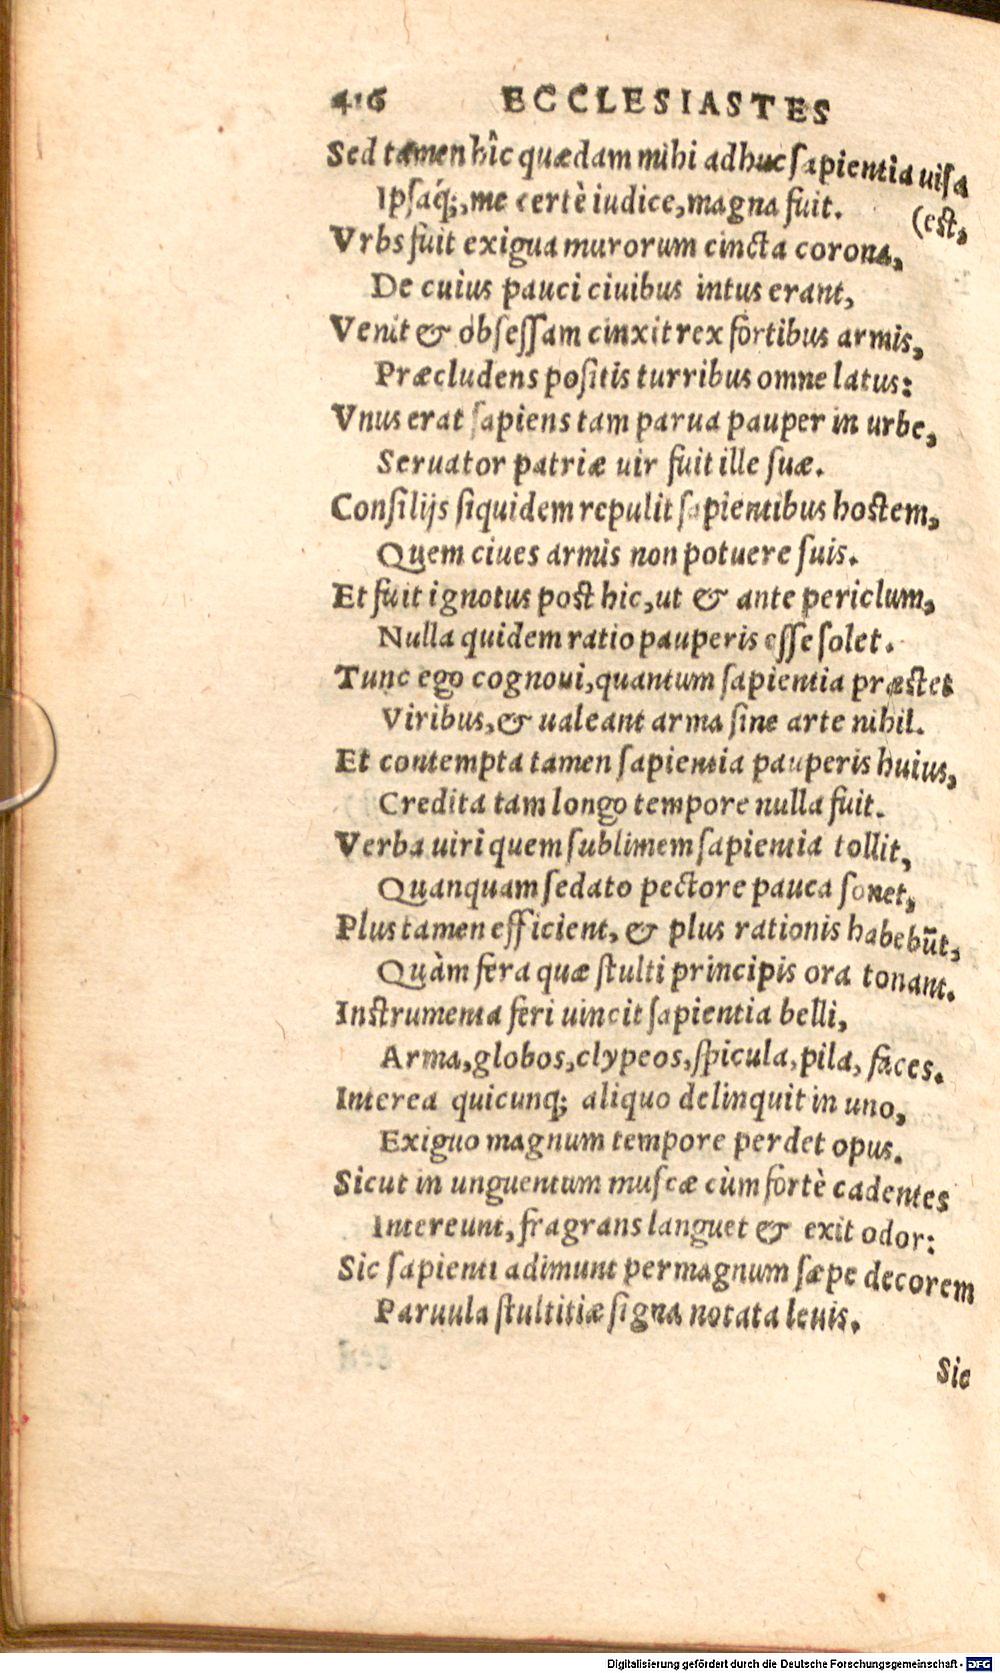 416 ECCLESIASTES
Sed tamen hîc quædam mihi adhuc sapientia uisa
Ipsaq́;, me certè iudice, magna fuit. (est,
Vrbs fuit exigua murorum cincta corona,
De cuius pauci ciuibus intus erant,
Venit & obsessam cinxit rex fortibus armis,
Præcludens positis turribus omne latus:
Vnus erat sapiens tam parua pauper in urbe,
Seruator patriæ uir fuit ille suæ.
Consilijs siquidem repulit sapientibus hostem,
Quem ciues armis non potuere suis.
Et fuit ignotus post hic, ut & ante periclum,
Nulla quidem ratio pauperis esse solet.
Tunc ego cognoui, quantum sapientia præstet
Viribus, & ualeant arma sine arte nihil.
Et contempta tamen sapientia pauperis huius,
Credita tam longo tempore nulla fuit.
Verba uiri quem sublimem sapientia tollit,
Quanquam sedato pectore pauca sonet,
Plus tamen efficient, & plus rationis habebūt,
Quàm fera quæ stulti principis ora tonant.
Instrumenta feri uincit sapientia belli,
Arma, globos, clypeos, spicula, pila, faces.
Interea quicunq; aliquo delinquit in uno,
Exiguo magnum tempore perdet opus.
Sicut in unguentum muscæ cùm fortè cadentes
Intereunt, fragrans languet & exit odor:
Sic sapienti adimunt permagnum sæpe decorem
Paruula stultitiæ signa notata leuis.
Sic
Digitalisierung gefördert durch die Deutsche Forschungsgemeinschaft - DFG